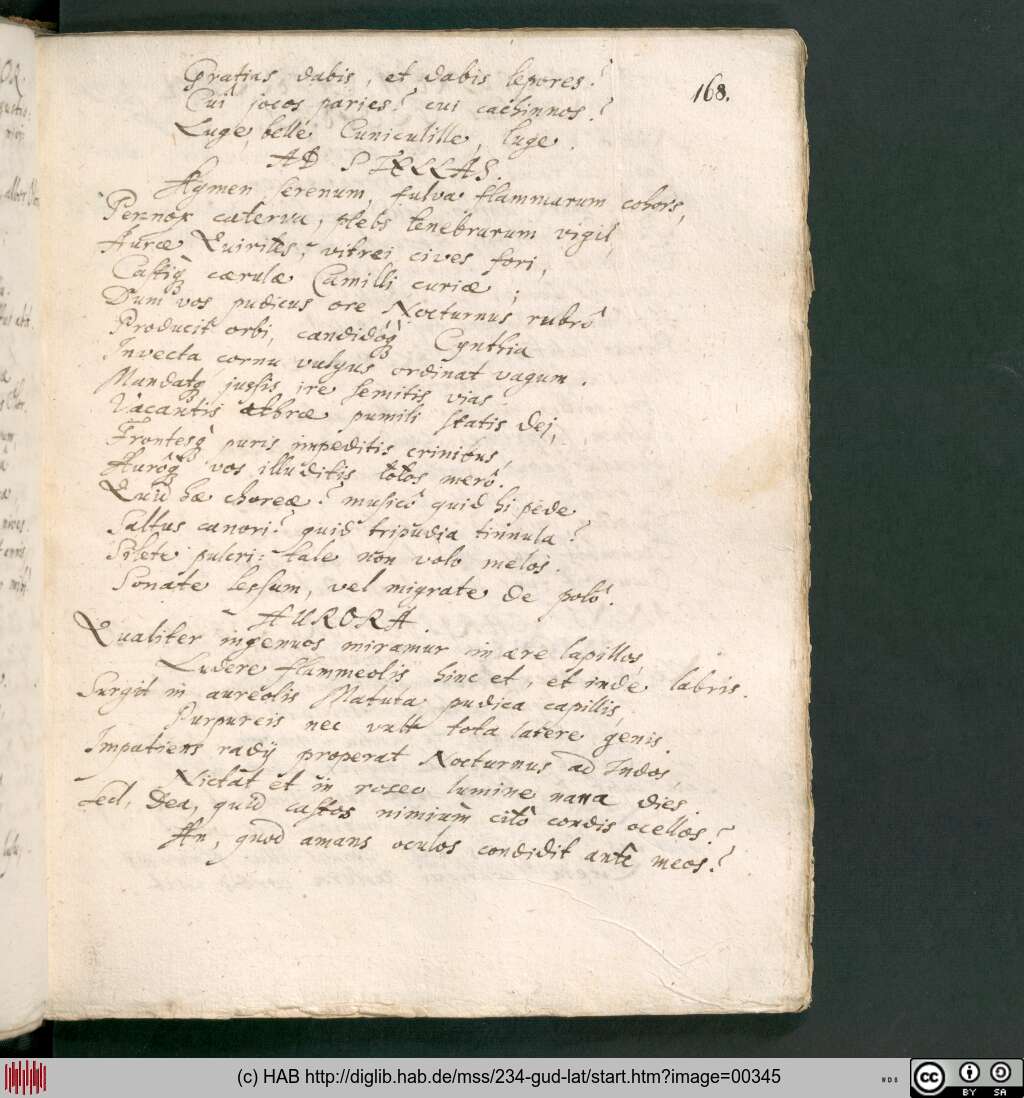 168.
Gratias dabis, et dabis lepores?
Cui jocos paries? cui cachinnos?
Luge, belle Cuniculille, luge.
AD STELLAS.
Hymen serenum, fulva flammarum cohors,
Pernox caterva, plebs tenebrarum vigil,
Auræ Quirites, vitrei cives fori,
Castiq; cærulæ Camilli curiæ;
Dum vos pudicus ore Nocturnus rubrô
Producit orbi, candidóq; Cynthia
Invecta cornu vulgus ordinat vagum.
Mandatq; jussis ire semitis vias.
Vacantis æthræ pumili statis dei,
Frontesq; puris impeditis crinibus,
Aurôq; vos illuditis totos merô.
Quid hæ choreæ? musicô quid hi pede
Saltus canori? quid tripudia tinnula?
Silete pulcri: tale non volo melos.
Sonate lessum, vel migrate de polô.
AURORA.
Qualiter ingenuos miramur in ære lapillos,
Ludere flammeolis hinc et, et inde labris.
Surgit in aureolis Matuta pudica capillis,
Purpureis nec vult tota latere genis.
Impatiens radij properat Nocturnus ad Indos,
Nictat et in roseo lumine nana dies.
Sed, Dea, quid castos nimiùm citò condis ocellos?
An, quod amans oculos condidit antè meos?
(c) HAB http://diglib.hab.de/mss/234-gud-lat/start.htm?image=00345
cc BY SA